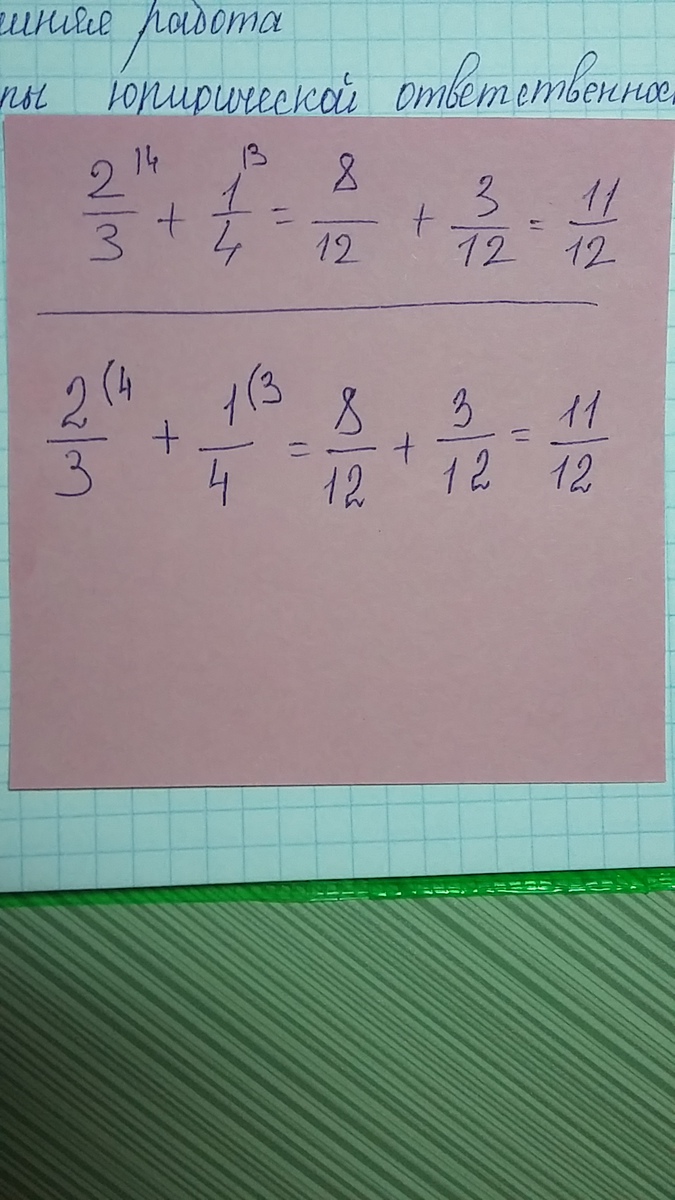 шняя работа
ры юридической ответственнос
2/3 |4 + 1/4 |3 = 8/12 + 3/12 = 11/12
2/3 (4 + 1/4 (3 = 8/12 + 3/12 = 11/12